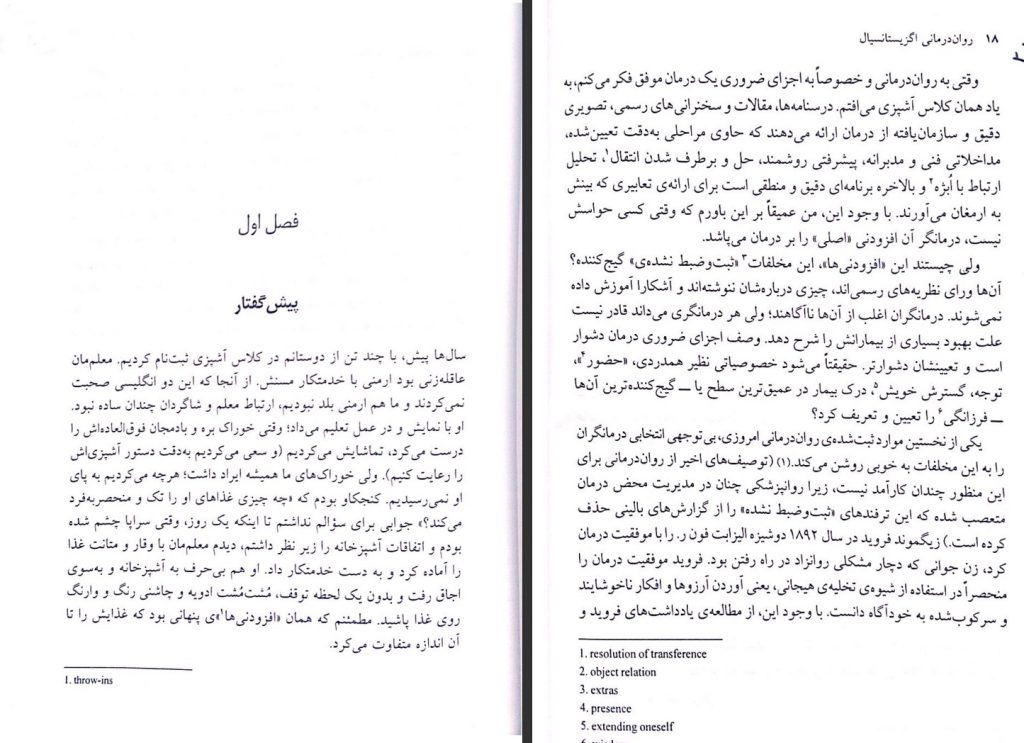 فصل اول
پیش‌گفتار
سال‌ها پیش، با چند تن از دوستانم در کلاس آشپزی ثبت‌نام کردیم. معلم‌مان
عاقله‌زنی بود ارمنی با خدمتکار مسنش. از آنجا که این دو انگلیسی صحبت
نمی‌کردند و ما هم ارمنی بلد نبودیم، ارتباط معلم و شاگردان چندان ساده نبود.
او با نمایش و در عمل تعلیم می‌داد؛ وقتی خوراک بره و بادمجان فوق‌العاده‌اش را
درست می‌کرد، تماشایش می‌کردیم (و سعی می‌کردیم به‌دقت دستور آشپزی‌اش
را رعایت کنیم). ولی خوراک‌های ما همیشه ایراد داشت؛ هرچه می‌کردیم به پای
او نمی‌رسیدیم. کنجکاو بودم که «چه چیزی غذاهای او را تک و منحصربه‌فرد
می‌کند؟» جوابی برای سؤالم نداشتم تا اینکه یک روز، وقتی سراپا چشم شده
بودم و اتفاقات آشپزخانه را زیر نظر داشتم، دیدم معلم‌مان با وقار و متانت غذا
را آماده کرد و به دست خدمتکار داد. او هم بی‌حرف به آشپزخانه و به‌سوی
اجاق رفت و بدون یک لحظه توقف، مُشت‌مُشت ادویه و چاشنی رنگ و وارنگ
روی غذا پاشید. مطمئنم که همان «افزودنی‌ها¹»ی پنهانی بود که غذایش را تا
آن اندازه متفاوت می‌کرد.
1. throw-ins
۱۸ روان‌درمانی اگزیستانسیال
وقتی به روان‌درمانی و خصوصاً به اجزای ضروری یک درمان موفق فکر می‌کنم، به
یاد همان کلاس آشپزی می‌افتم. درسنامه‌ها، مقالات و سخنرانی‌های رسمی، تصویری
دقیق و سازمان‌یافته از درمان ارائه می‌دهند که حاوی مراحلی به‌دقت تعیین‌شده،
مداخلاتی فنی و مدبرانه، پیشرفتی روشمند، حل و برطرف شدن انتقال¹، تحلیل
ارتباط با اُبژه² و بالاخره برنامه‌ای دقیق و منطقی است برای ارائه‌ی تعابیری که بینش
به ارمغان می‌آورند. با وجود این، من عمیقاً بر این باورم که وقتی کسی حواسش
نیست، درمانگر آن افزودنی «اصلی» را بر درمان می‌پاشد.
ولی چیستند این «افزودنی‌ها»، این مخلفات³ «ثبت‌وضبط نشده‌ی» گیج‌کننده؟
آن‌ها ورای نظریه‌های رسمی‌اند، چیزی درباره‌شان ننوشته‌اند و آشکارا آموزش داده
نمی‌شوند. درمانگران اغلب از آن‌ها ناآگاهند؛ ولی هر درمانگری می‌داند قادر نیست
علت بهبود بسیاری از بیمارانش را شرح دهد. وصف اجزای ضروری درمان دشوار
است و تعیینشان دشوارتر. حقیقتاً می‌شود خصوصیاتی نظیر همدردی، «حضور⁴»،
توجه، گسترش خویش⁵، درک بیمار در عمیق‌ترین سطح یا ــ گیج‌کننده‌ترین آن‌ها
ــ فرزانگی⁶ را تعیین و تعریف کرد؟
یکی از نخستین موارد ثبت‌شده‌ی روان‌درمانی امروزی، بی‌توجهی انتخابی درمانگران
را به این مخلفات به خوبی روشن می‌کند.(۱) (توصیف‌های اخیر از روان‌درمانی برای
این منظور چندان کارآمد نیست، زیرا روانپزشکی چنان در مدیریت محض درمان
متعصب شده که این ترفندهای «ثبت‌وضبط نشده» را از گزارش‌های بالینی حذف
کرده است.) زیگموند فروید در سال ۱۸۹۲ دوشیزه الیزابت فون ر. را با موفقیت درمان
کرد، زن جوانی که دچار مشکلی روانزاد در راه رفتن بود. فروید موفقیت درمان را
منحصراً در استفاده از شیوه‌ی تخلیه‌ی هیجانی، یعنی آوردن آرزوها و افکار ناخوشایند
و سرکوب‌شده به خودآگاه دانست. با وجود این، از مطالعه‌ی یادداشت‌های فروید و
1. resolution of transference
2. object relation
3. extras
4. presence
5. extending oneself